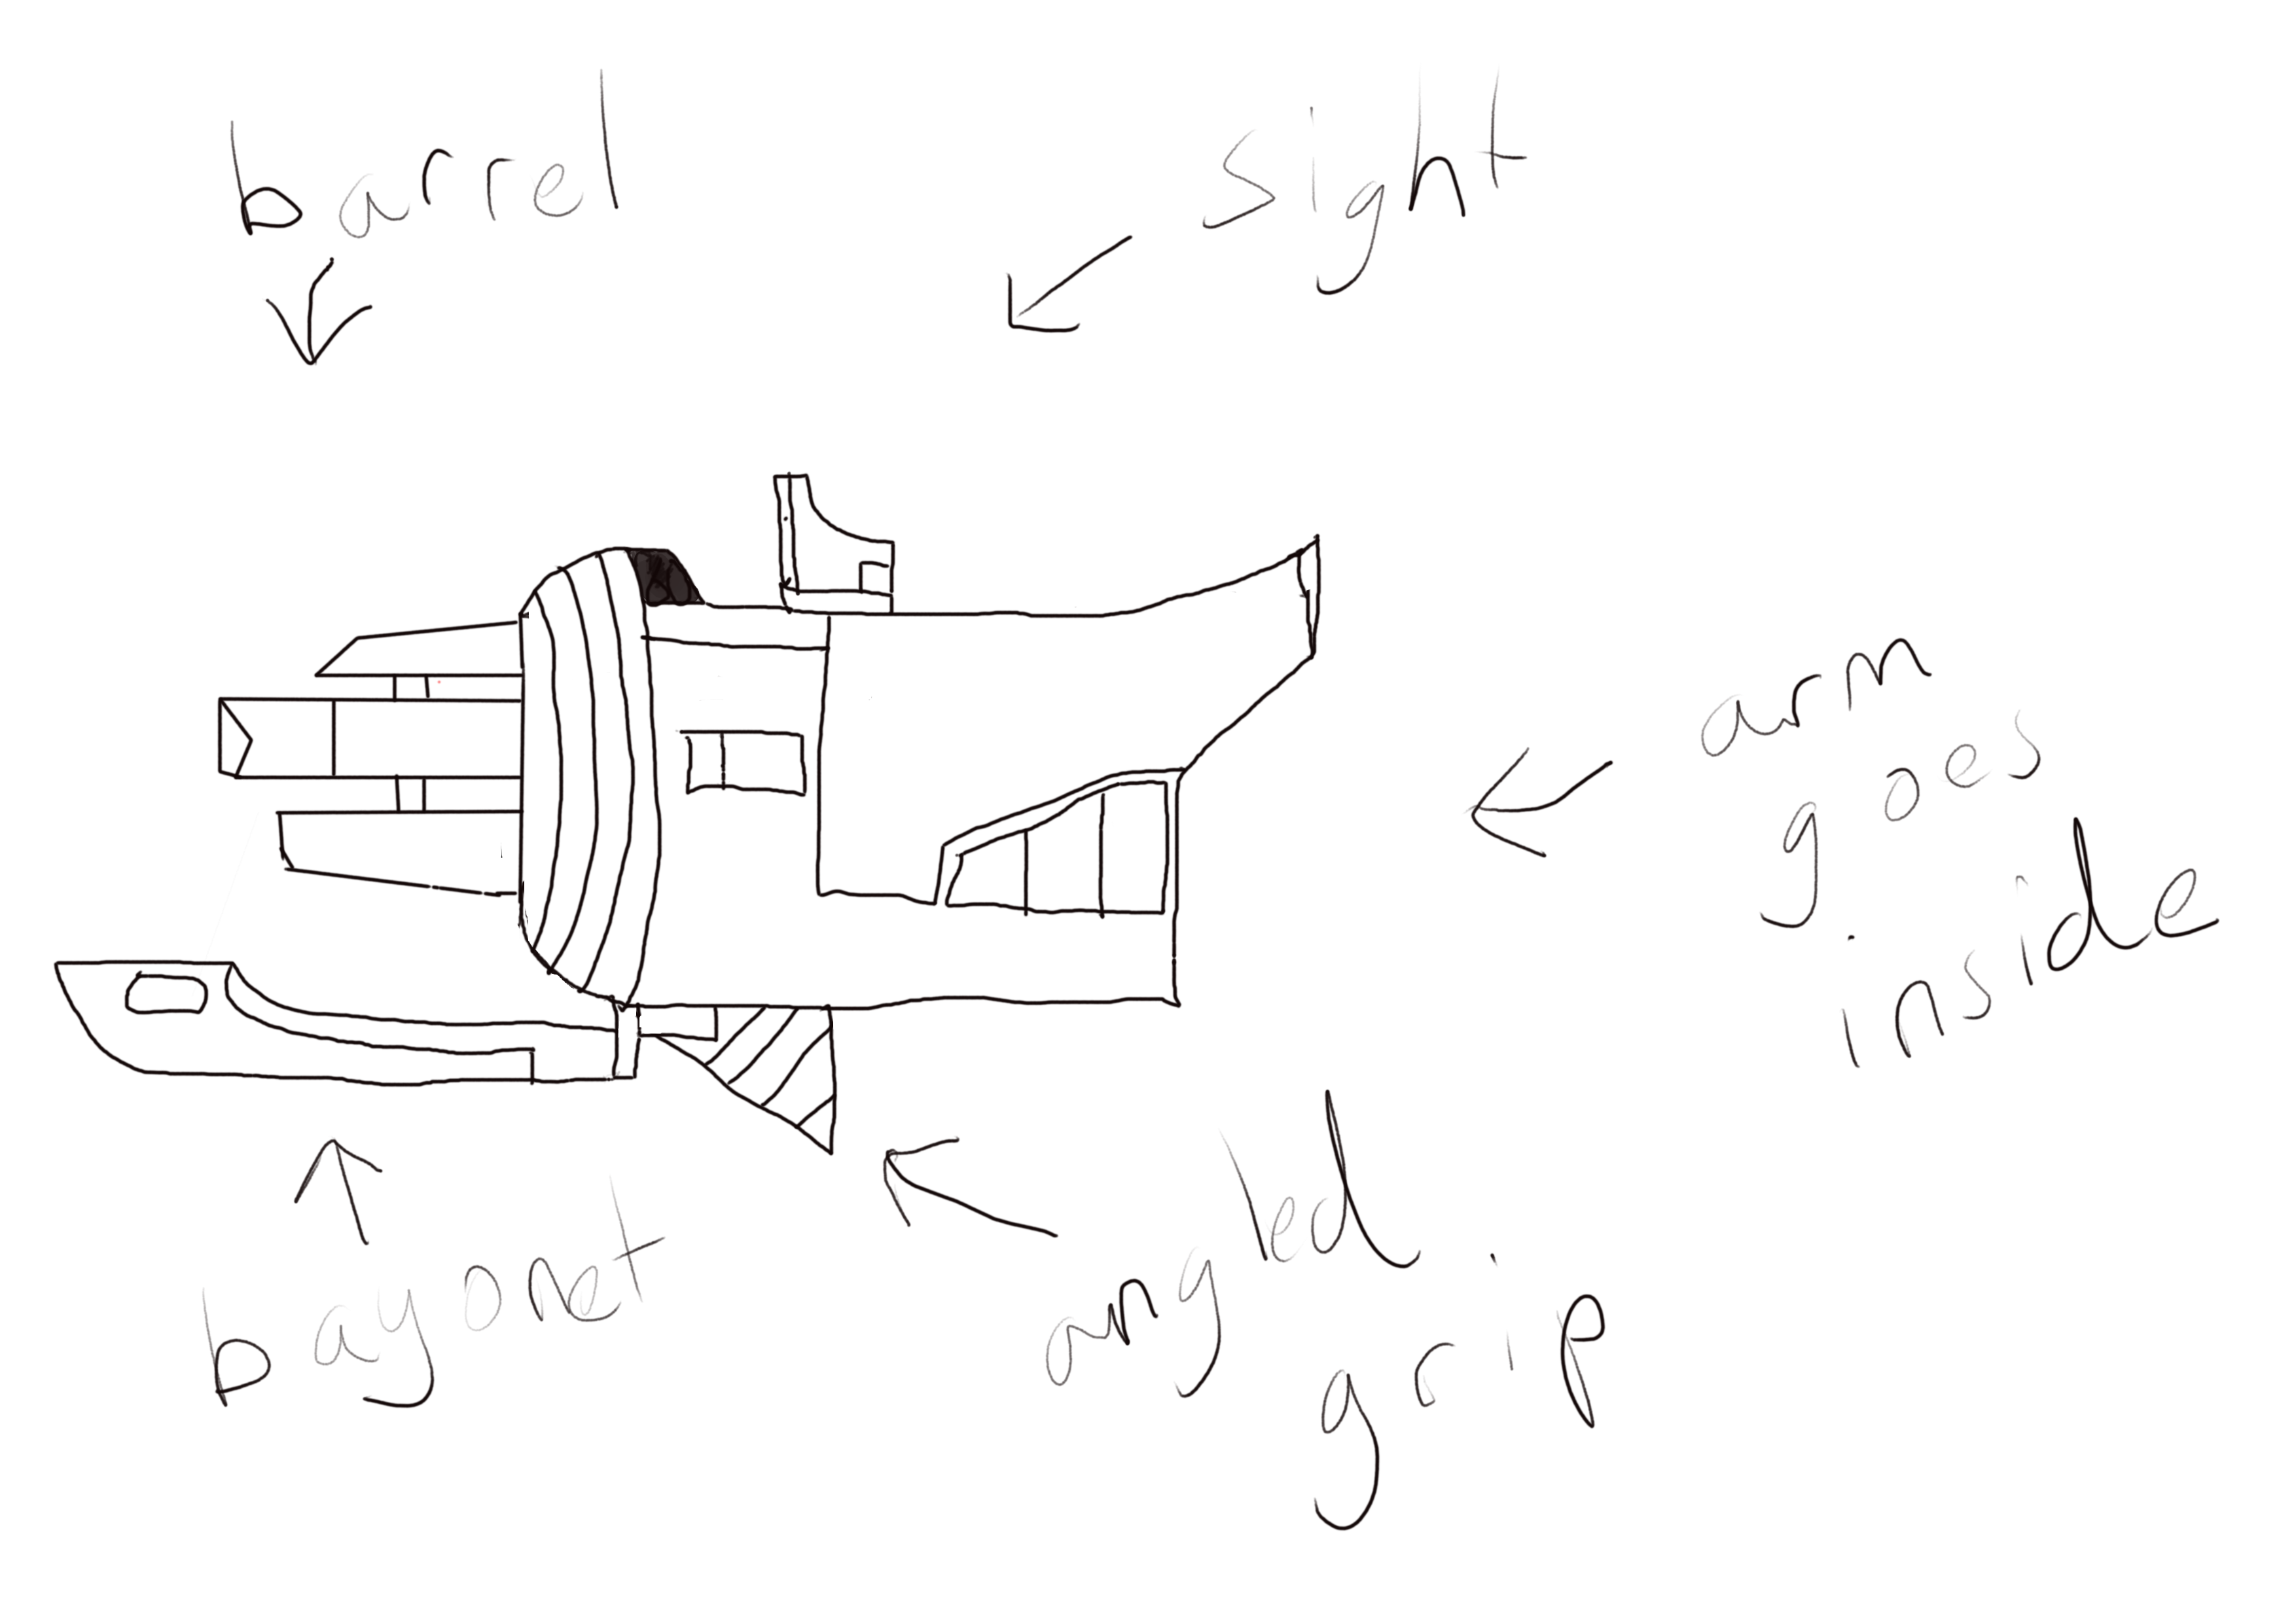 barrel
sight
arm
goes
inside
bayonet
angled
grip